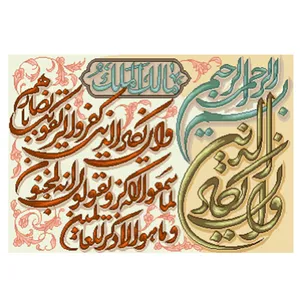 بسم الله الرحمن الرحيم
يا مالك الملك
وان يكاد الذين
وان يكاد الذين كفروا ليزلقونك بابصارهم
لما سمعوا الذكر ويقولون انه لمجنون
وما هو الا ذكر للعالمين